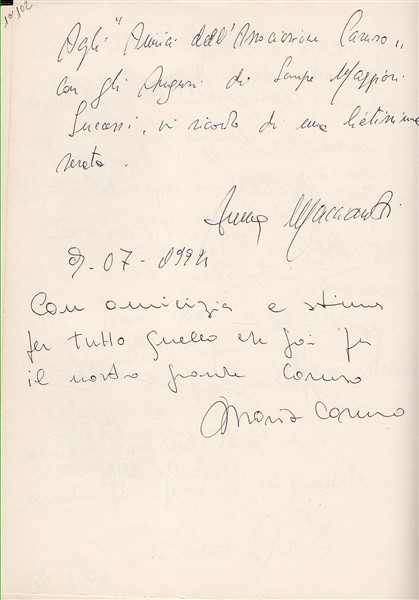 Agli "Amici dell'Associazione Caruso„
con gli Auguri di Sempre Maggiori
Successi, in ricordo di una lietissima
serata.
Anna
9-07-1994
Con amicizia e stima
per tutto quello che fai per
il nostro grande Caruso
Maria Caruso